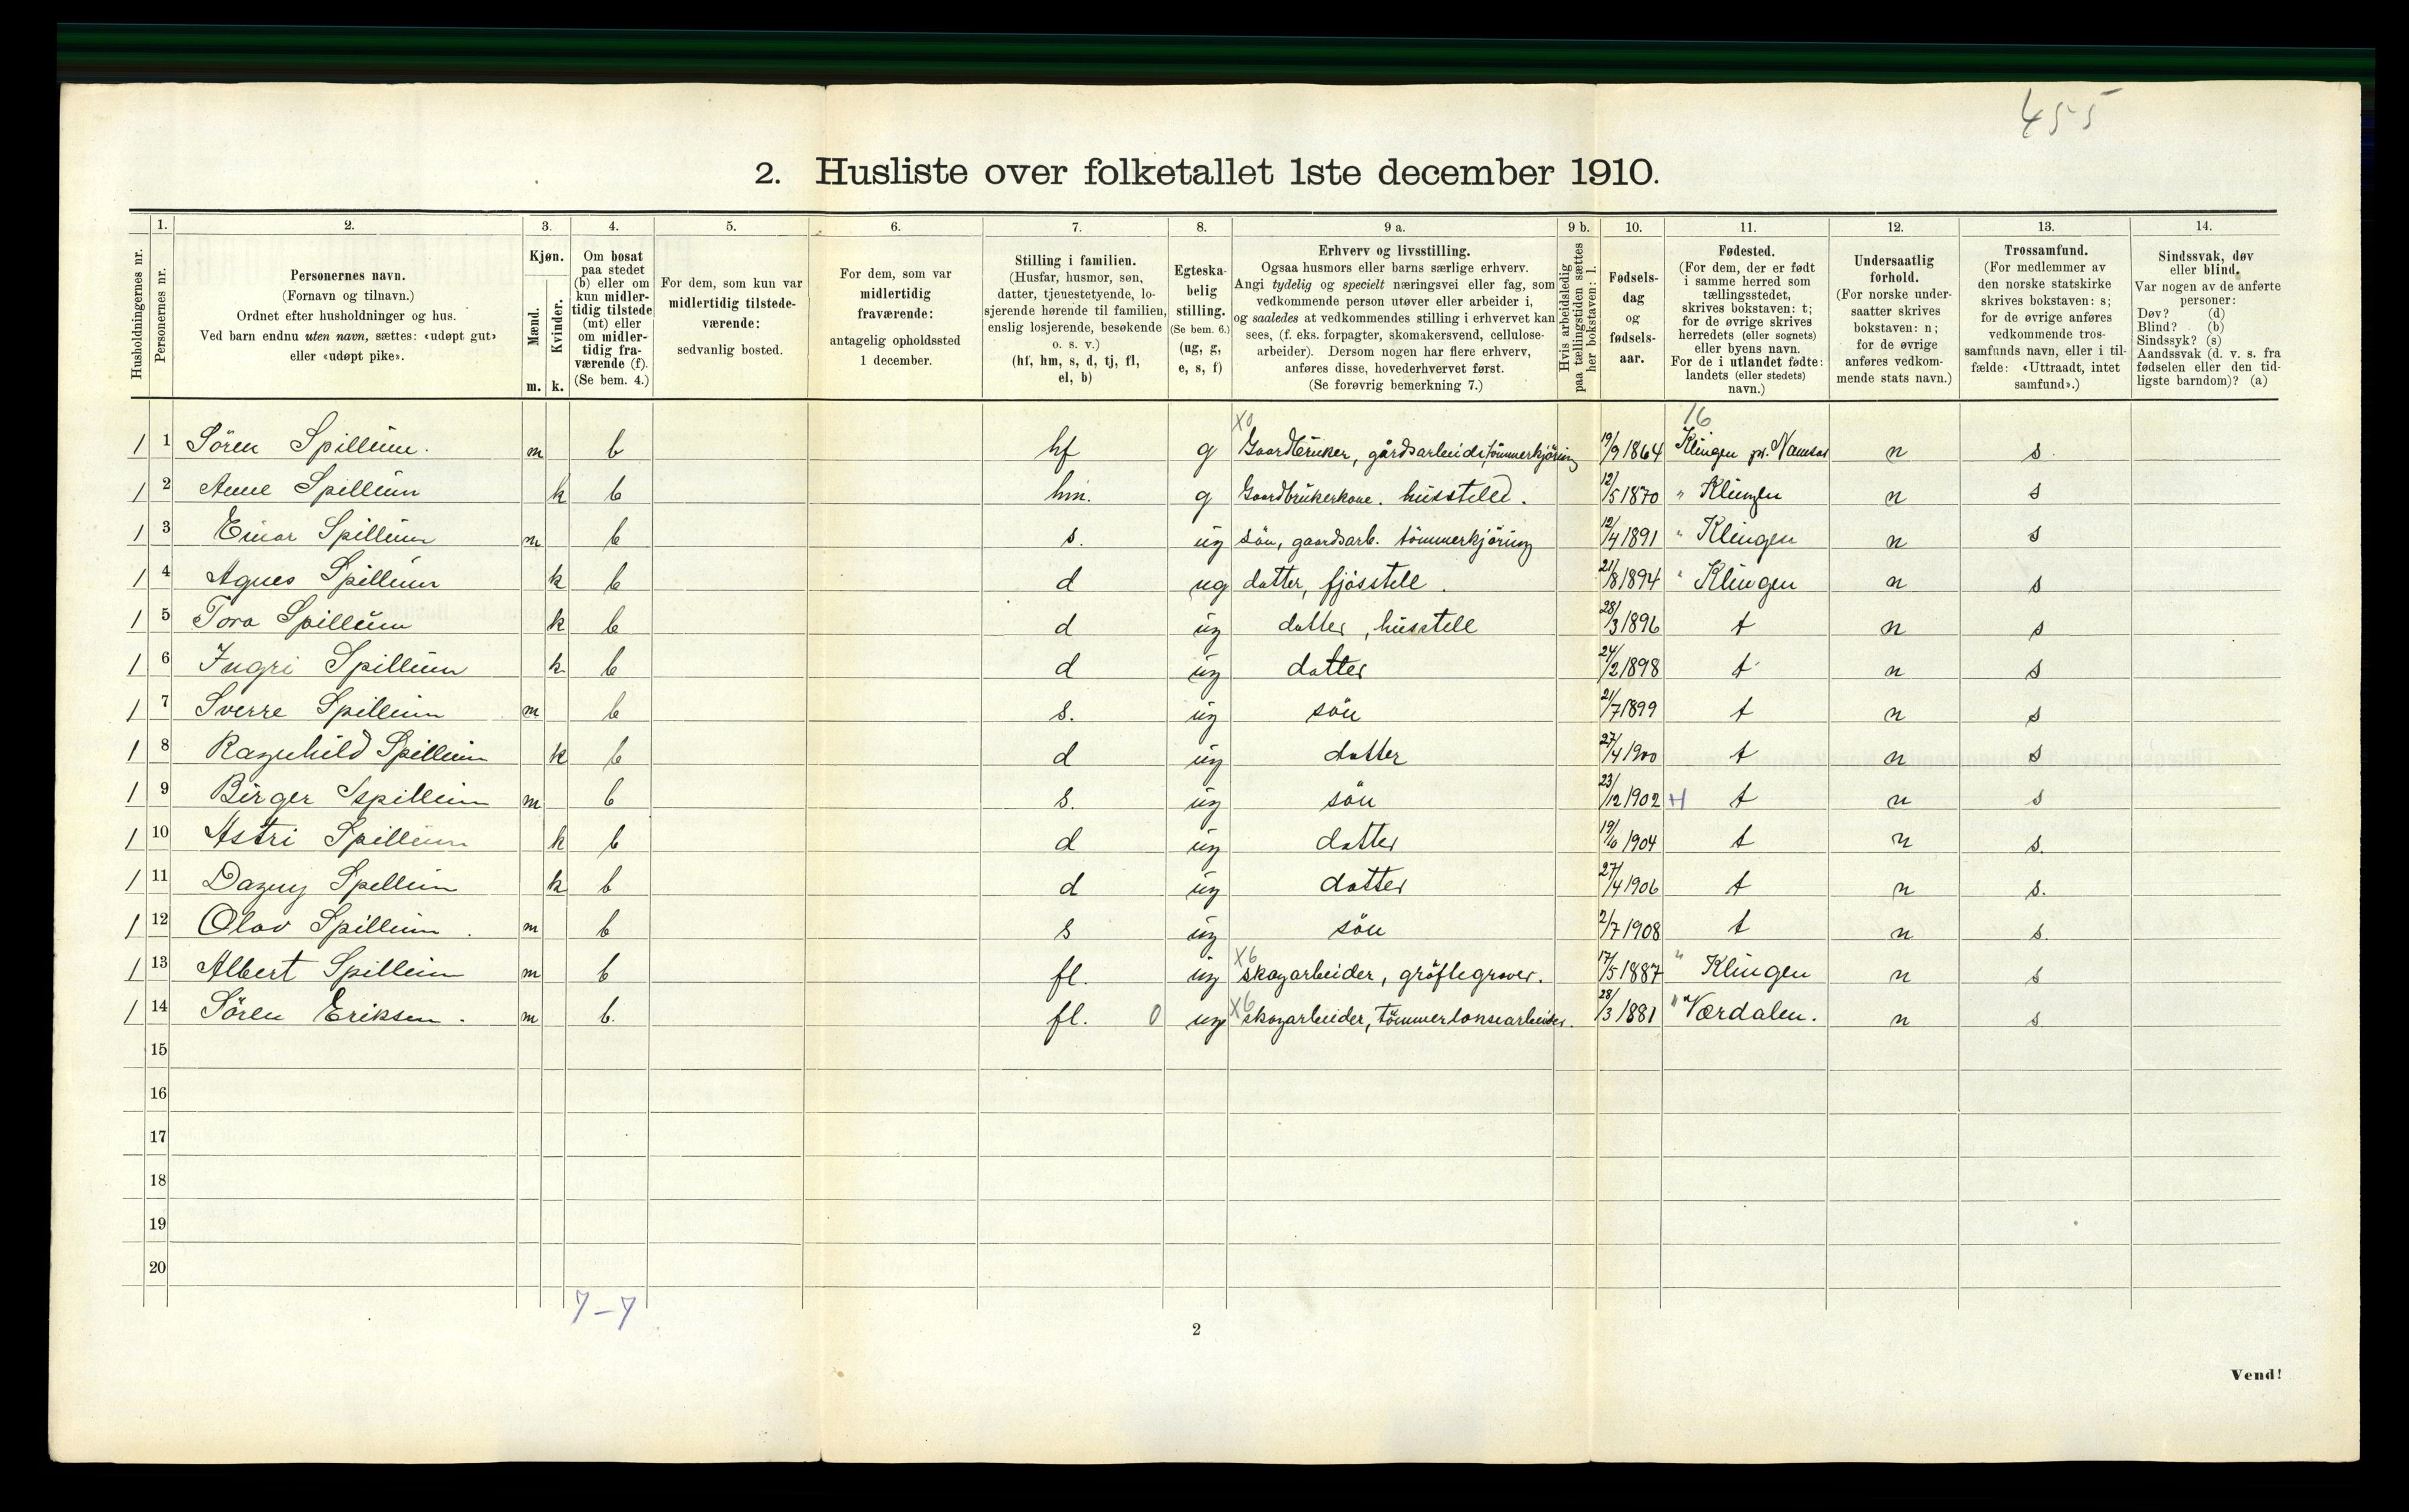 455
2. Husliste over folketallet 1ste december 1910.
Husholdningernes nr.
1. Personernes nr.
2. Personernes navn.
(Fornavn og tilnavn.)
Ordnet efter husholdninger og hus.
Ved barn endnu uten navn, sættes: «udøpt gut»
eller «udøpt pike».
3. Kjøn.
Mænd. m.
Kvinder. k.
4. Om bosat
paa stedet
(b) eller om
kun midler-
tidig tilstede
(mt) eller
om midler-
tidig fra-
værende (f).
(Se bem. 4.)
5. For dem, som kun var
midlertidig tilstede-
værende:
sedvanlig bosted.
6. For dem, som var
midlertidig
fraværende:
antagelig opholdssted
1 december.
7. Stilling i familien.
(Husfar, husmor, søn,
datter, tjenestetyende, lo-
sjerende hørende til familien,
enslig losjerende, besøkende
o. s. v.)
(hf, hm, s, d, tj, fl,
el, b)
8. Egteska-
belig
stilling.
(Se bem. 6.)
(ug, g,
e, s, f)
9 a. Erhverv og livsstilling.
Ogsaa husmors eller barns særlige erhverv.
Angi tydelig og specielt næringsvei eller fag, som
vedkommende person utøver eller arbeider i,
og saaledes at vedkommendes stilling i erhvervet kan
sees, (f. eks. forpagter, skomakersvend, cellulose-
arbeider). Dersom nogen har flere erhverv,
anføres disse, hovederhvervet først.
(Se forøvrig bemerkning 7.)
9 b. Hvis arbeidsledig
paa tællingstiden sættes
her bokstaven: l.
10. Fødsels-
dag
og
fødsels-
aar.
11. Fødested.
(For dem, der er født
i samme herred som
tællingsstedet,
skrives bokstaven: t;
for de øvrige skrives
herredets (eller sognets)
eller byens navn.
For de i utlandet fødte:
landets (eller stedets)
navn.)
12. Undersaatlig
forhold.
(For norske under-
saatter skrives
bokstaven: n;
for de øvrige
anføres vedkom-
mende stats navn.)
13. Trossamfund.
(For medlemmer av
den norske statskirke
skrives bokstaven: s;
for de øvrige anføres
vedkommende tros-
samfunds navn, eller i til-
fælde: «Uttraadt, intet
samfund».)
14. Sindssvak, døv
eller blind.
Var nogen av de anførte
personer:
Døv? (d)
Blind? (b)
Sindssyk? (s)
Aandssvak (d. v. s. fra
fødselen eller den tid-
ligste barndom)? (a)
X0 16
1 1 Sören Spillum. m b hf g Gaardbruker, gårdsarbeide, tömmerkjöring 19/9 1864 Klingen pr. Namsos n s.
1 2 Anne Spillum k b hm. g Gaardbrukerkone. husstell. 12/5 1870 " Klingen n s
1 3 Einar Spillum m b s. ug sön, gaardsarb. tömmerkjöring 12/4 1891 " Klingen n s
1 4 Agnes Spillum k b d ug datter, fjösstell. 21/8 1894 " Klingen n s
1 5 Tora Spillum k b d ug datter, husstell 28/3 1896 t n s
1 6 Ingri Spillum k b d ug datter 24/2 1898 t n s
1 7 Sverre Spillum m b s. ug sön 21/7 1899 t n s
1 8 Ragnhild Spillum k b d ug datter 27/4 1900 t n s
1 9 Birger Spillum m b s. ug sön 23/12 1902 H t n s
1 10 Astri Spillum k b d ug datter 19/6 1904 t n s.
1 11 Dagny Spillum k b d ug datter 27/4 1906 t n s.
1 12 Olav Spillum. m b s ug sön 2/7 1908 t n s.
1 13 Albert Spillum m b fl. ug X6 skogarbeider, gröftegraver. 17/5 1887 " Klingen n s
1 14 Sören Eriksen. m b. fl. 0 ug X6 skogarbeider, tömmerlensearbeider. 28/3 1881 " Værdalen. n s
15
16
17
18
19
20
7-7
2
Vend!